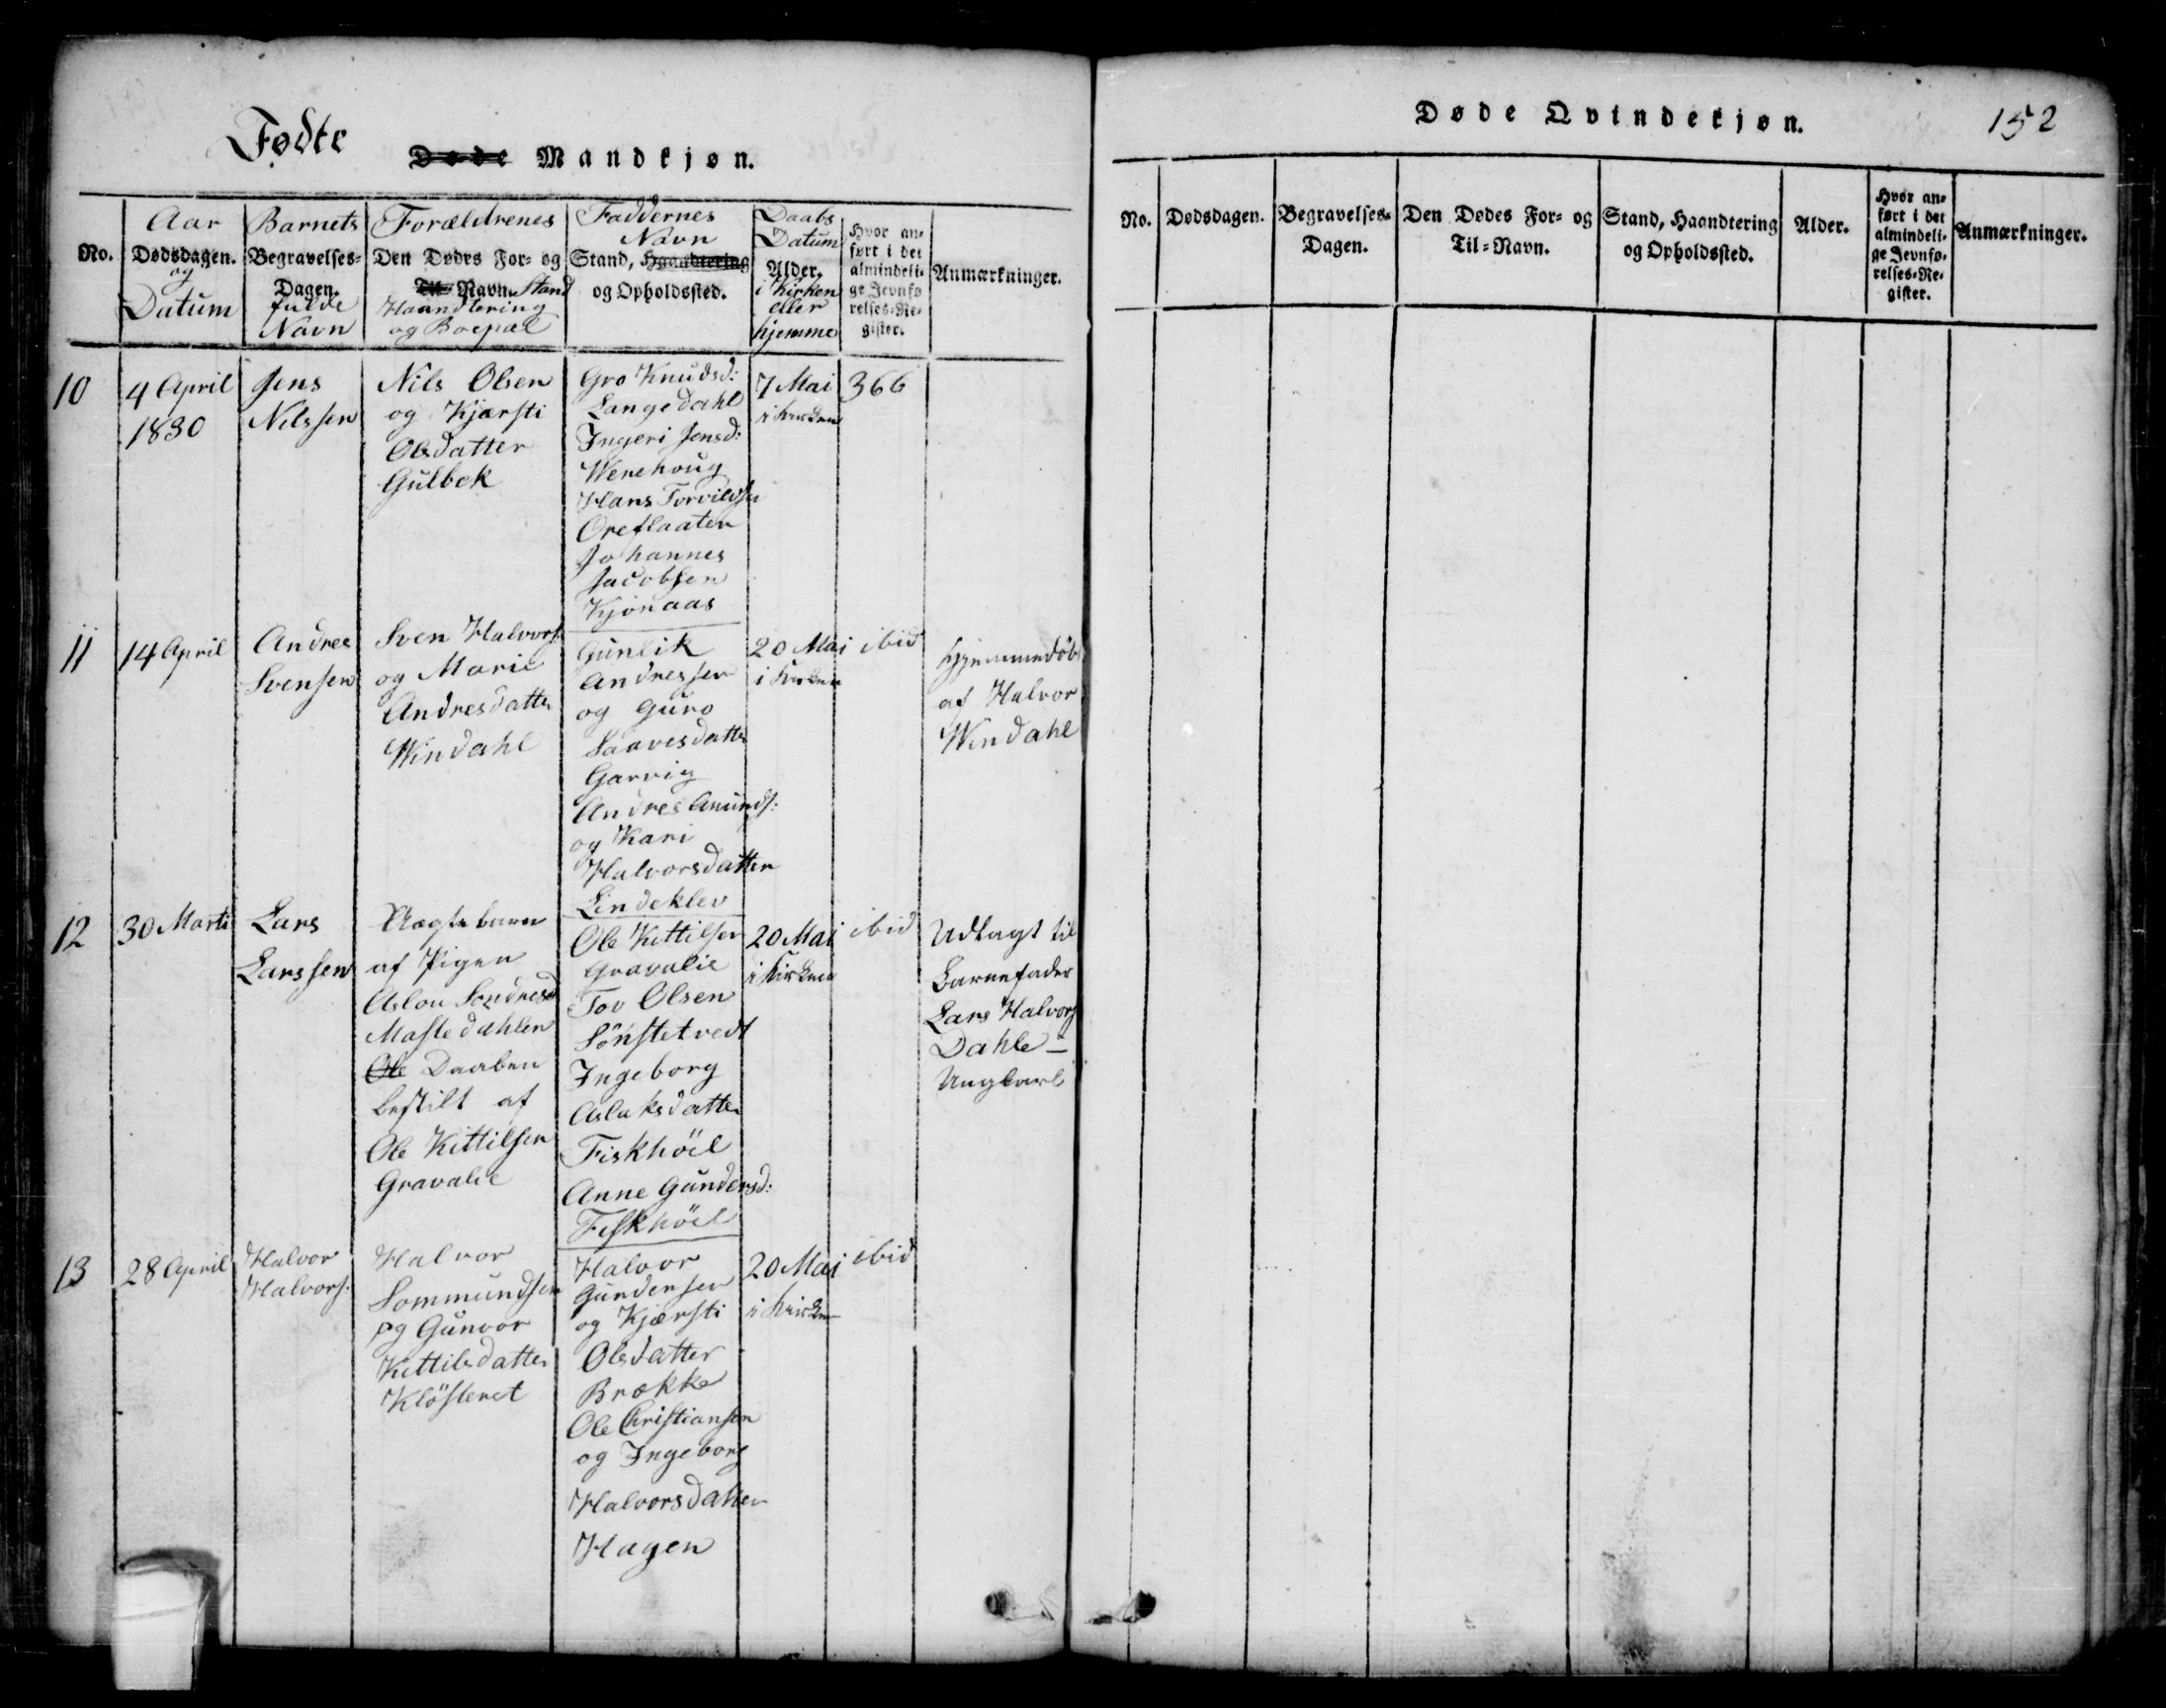 Fødte
Døde Mandkjøn.
No.
Aar
Dødsdagen.
og
Datum
Barnets
Begravelses=
Dagen.
fulde
Navn
Forældrenes
Den Dødes For= og
Til= Navn. Stand
Haandtering
og Boepæl
Faddernes
Navn
Stand, Haandtering
og Opholdssted.
Daabs
Datum
Alder.
i Kirken
eller
hjemme
Hvor an=
ført i det
almindeli=
ge Jevnfø
relses=Re=
gister.
Anmærkninger.
10
4 April
1830
Jens
Nilssen
Nils Olsen
og Kjærsti
Olsdatter
Gulbek
Gro Knudsd:
Langedahl
Ingeri Jensd:
Werehoug
Hans Torvildsen
Oreflaaten
Johannes
Jacobsen
Kjönaas
7 Mai
i Kirken
366
11
14 April
Andres
Svensen
Sven Halvors
og Marie
Andresdatter
Windahl
Gunlik
Andressen
og Guro
Saavesdatter
Garvig
Andres Amunds:
og Kari
Halvorsdatter
Lindeklev
20 Mai
i Kirken
ibid
hjemmedöbt
af Halvor
Windahl
12
30 Marti
Lars
Larssen
Uægte barn
af Pigen
Aslou Sondresd
Mastedahlen
Ole Daaben
bestilt af
Ole Kittilsen
Gravalie
Ole Kittilsen
Gravalie
Tov Olsen
Sönstetvedt
Ingeborg
Aslaksdatter
Fiskhöil
Anne Gundersd:
Fiskhöil
20 Mai
i Kirken
ibid
Udlagt til
Barnefader
Lars Halvors
Dahle –
Ungkarl
13
28 April
Halvor
Halvors:
Halvor
Sommundsen
og Gunvor
Kittilsdatter
Klösteret
Halvor
Gundersen
og Kjærsti
Olsdatter
Brække
Ole Christiansen
og Ingeborg
Halvorsdatter
Hagen
20 Mai
i Kirken
ibid
Døde Qvindekjøn.
152
No.
Dødsdagen.
Begravelses=
Dagen.
Den Dødes For= og
Til=Navn.
Stand, Haandtering
og Opholdssted.
Alder.
Hvor an=
ført i det
almindeli=
ge Jevnfø=
relses=Re=
gister.
Anmærkninger.